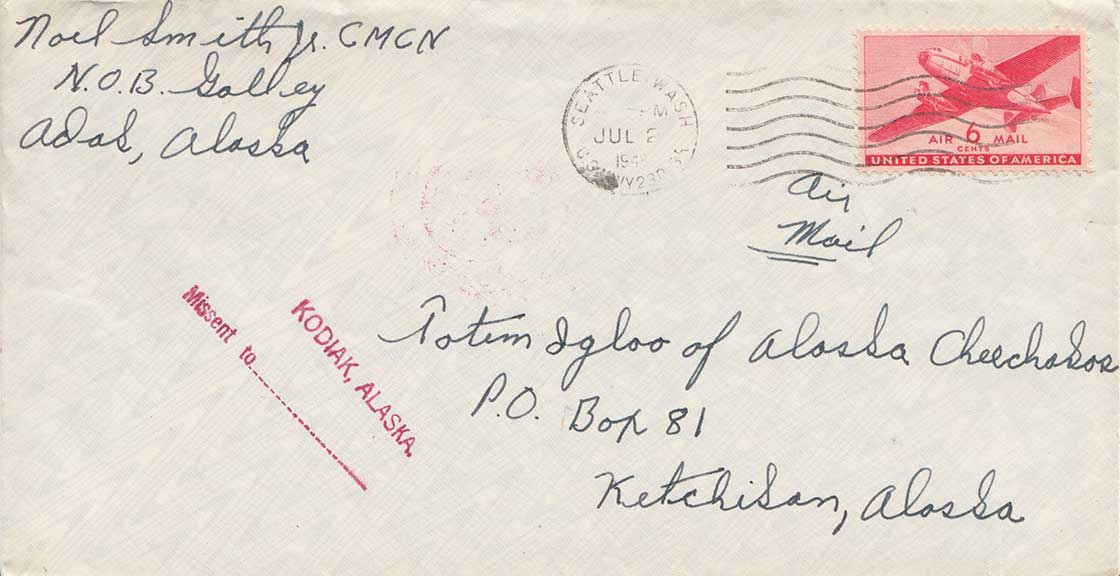 Noel Smith Jr. CMCN
N.O.B. Galley
Adak, Alaska
SEATTLE, WASH
PM
JUL 2
AIR 6 MAIL
CENTS
UNITED STATES OF AMERICA
Air
Mail
Missent to
KODIAK, ALASKA.
Totem Igloo of Alaska Cheechakos
P.O. Box 81
Ketchikan, Alaska